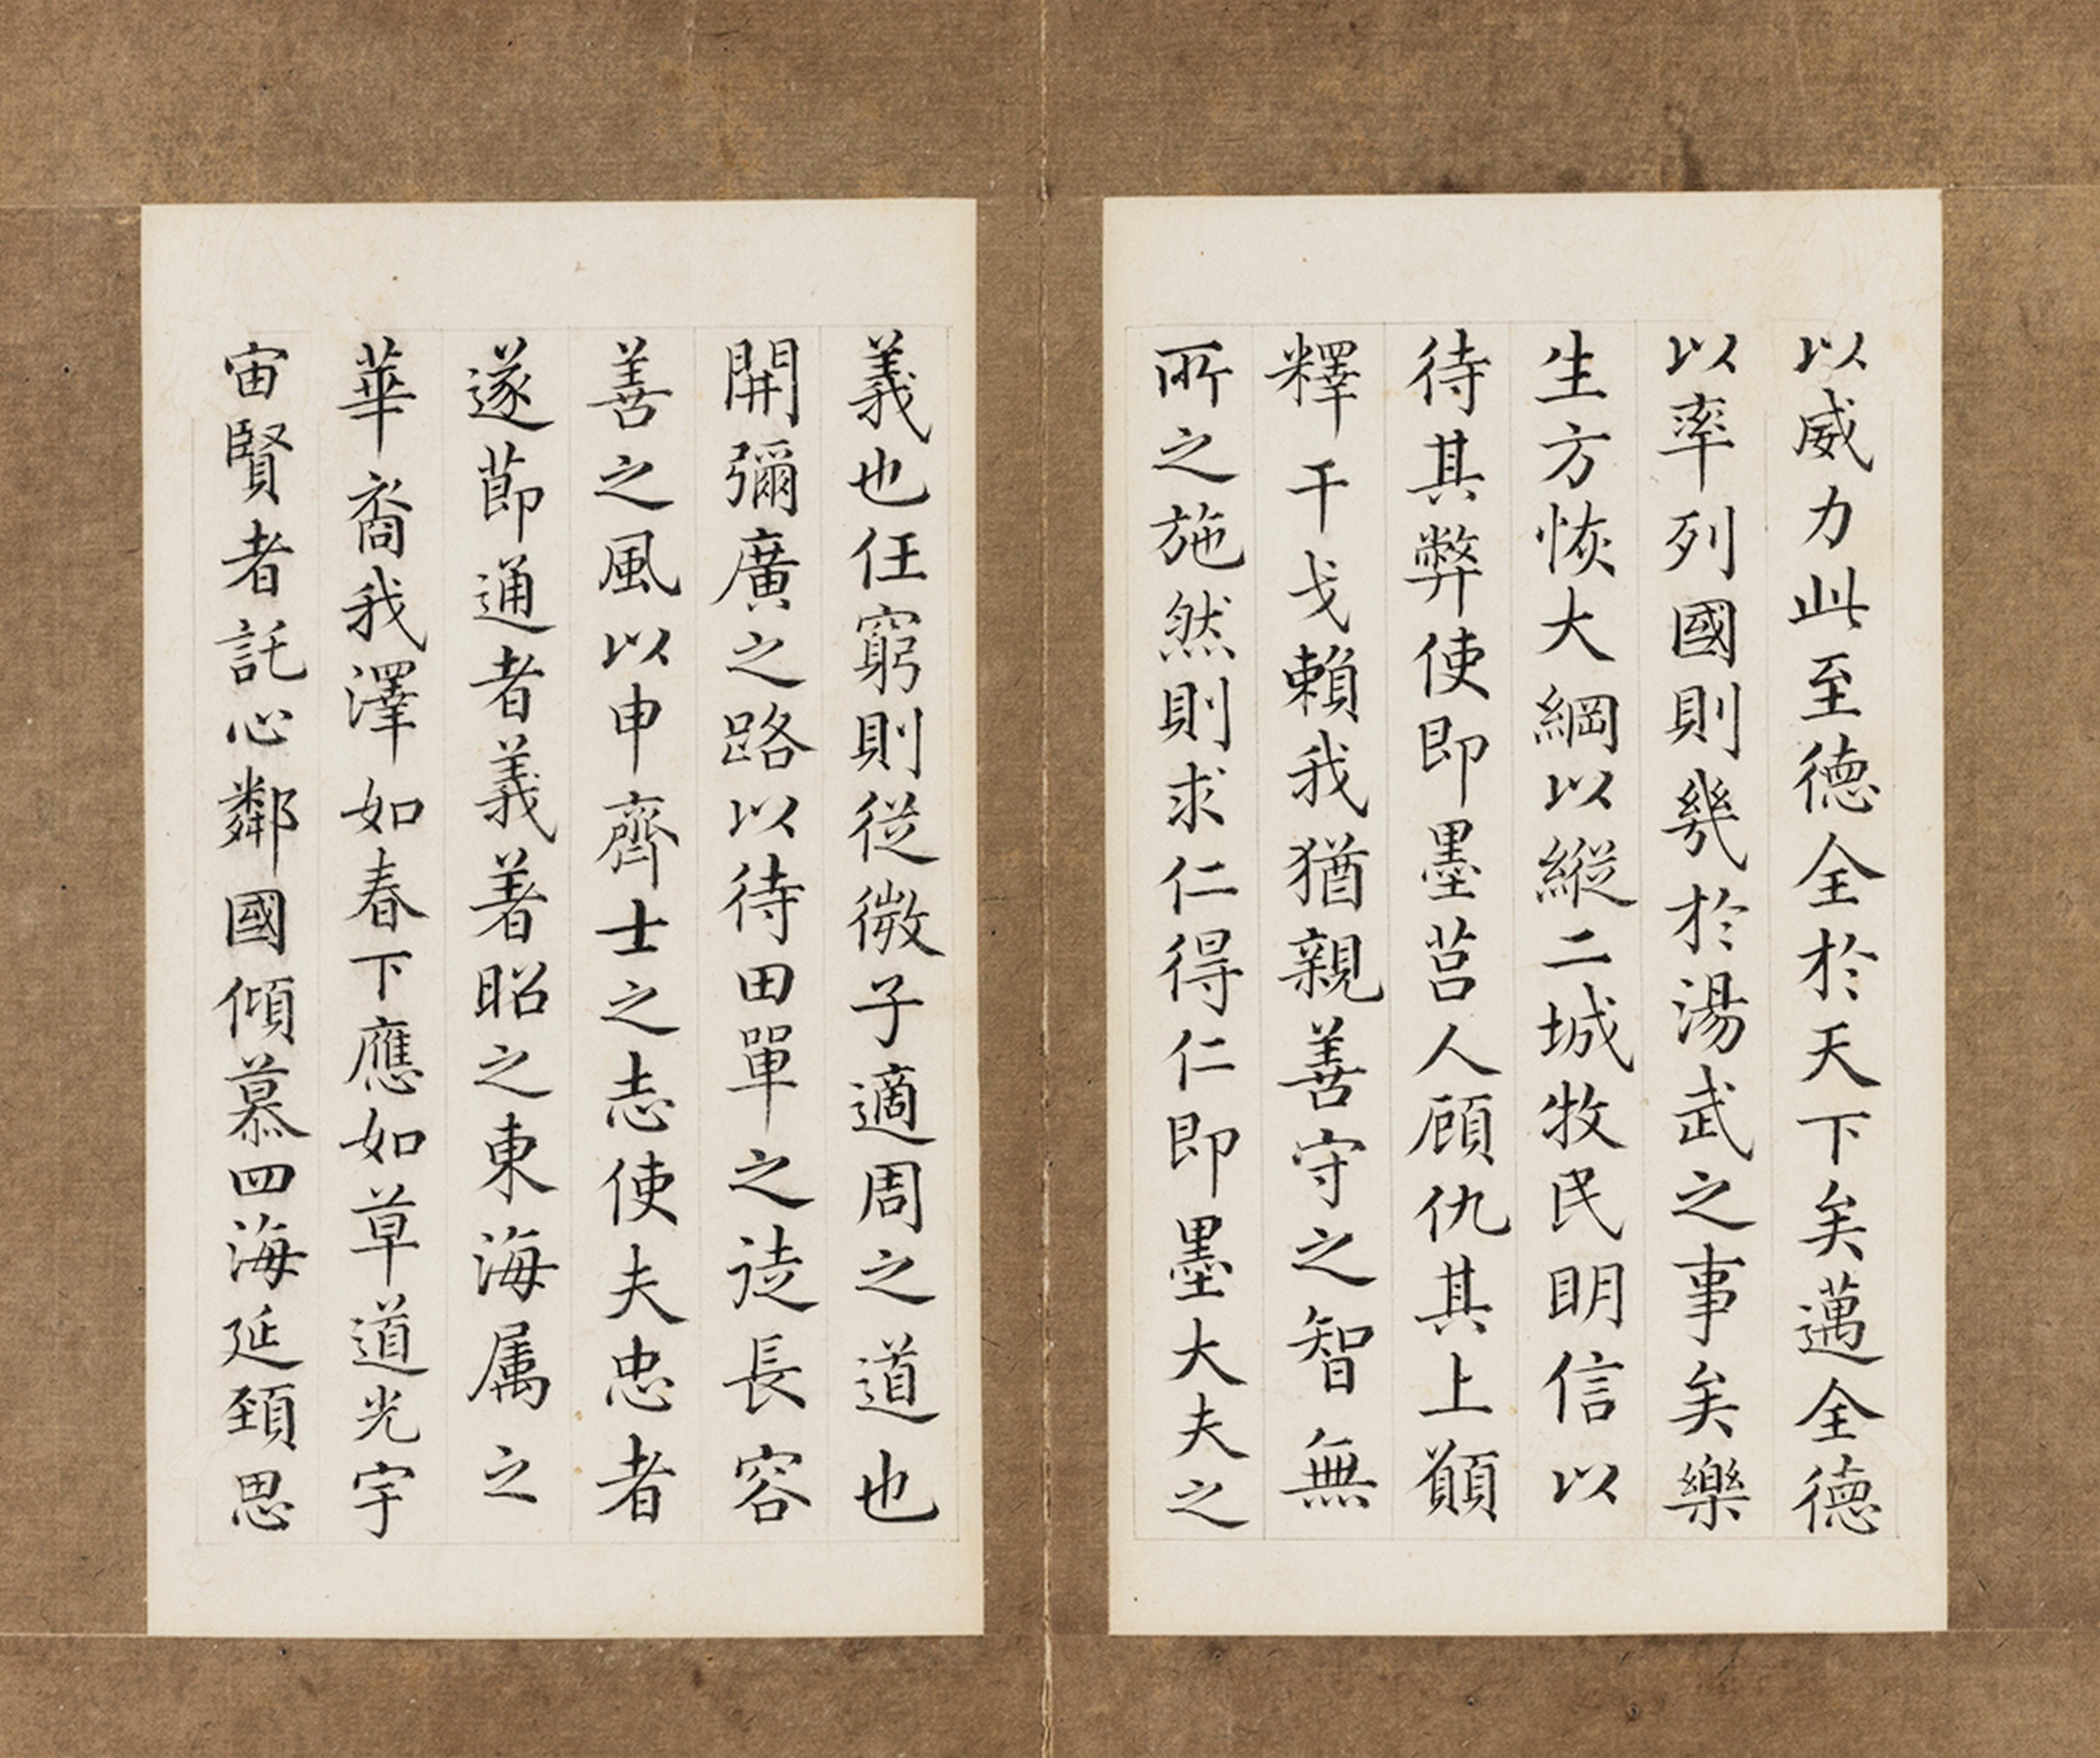 以威力此至德全於天下矣邁全德
以率列國則幾於湯武之事矣樂
生方恢大綱以縱二城牧民明信以
待其弊使即墨莒人顧仇其上願
釋干戈賴我猶親善守之智無
所之施然則求仁得仁即墨大夫之
義也任窮則從微子適周之道也
開彌廣之路以待田單之徒長容
善之風以申齊士之志使夫忠者
遂節通者義著昭之東海属之
華裔我澤如春下應如草道光宇
宙賢者託心鄰國傾慕四海延頸思